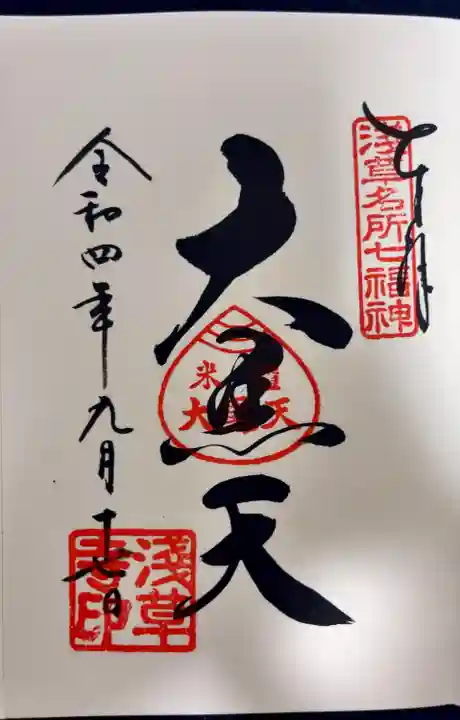 奉拝
浅草名所七福神
大黒天
米
大 天
令和四年九月十七日
浅草
寺印